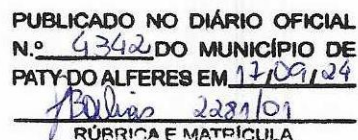 PUBLICADO NO DIÁRIO OFICIAL
N.º 4342 DO MUNICÍPIO DE
PATY DO ALFERES EM 17/09/24
2281/01
RÚBRICA E MATRÍCULA